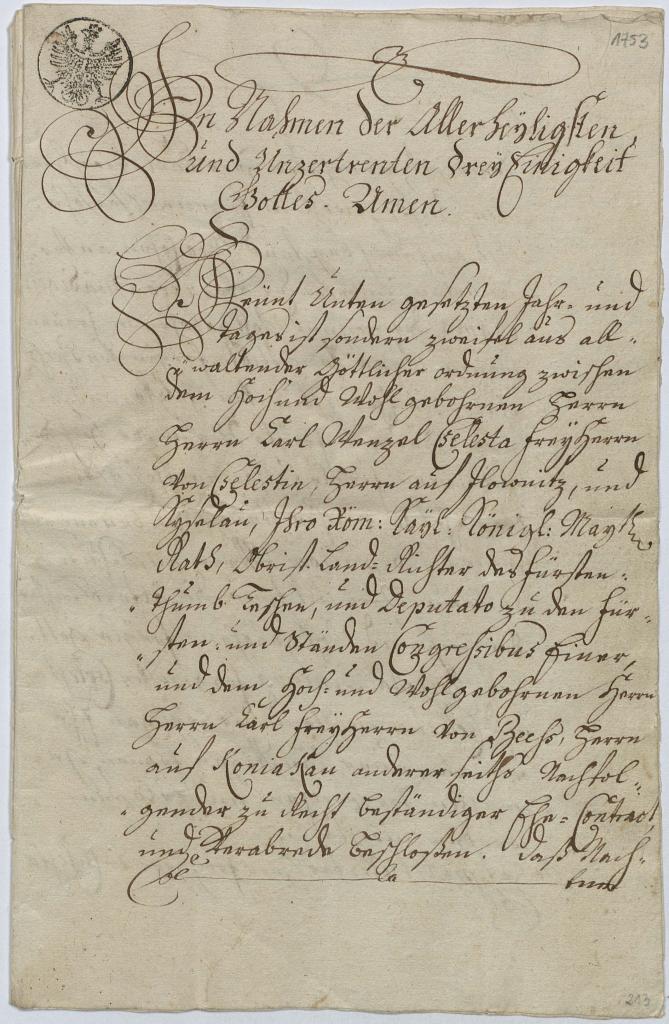 1753
In Nahmen der Allerheÿligsten,
und Unzertrenten dreÿ Einigkeit
Gottes. Amen.
Heünt Unten gesetzten Jahr- und
tages ist sondern zweifel aus all-
waltender Göttlicher ordnung zwischen
dem Hoch und Wohl gebohrnen Herrn
Herrn Carl Wenzel Cselesta FreÿHerrn
von Cselestin, Herrn auf Ilownitz, und
Kÿselau, Ihro Röm: Kaÿl: Königl: Maÿtt
Rath, Obrist. Land-Richter des Fürsten-
thumb Teschen, und Deputato zu den Für-
sten- und Ständen Congressibus Einer,
und dem Hoch- und Wohlgebohrnen Herrn
Herrn Carl FreÿHerrn von Beess, Herrn
auf KoniaKau anderer seiths Nachfol-
gender zu Recht beständiger Ehe-Contract,
und Verabrede beschloßen. daß Nach-
213